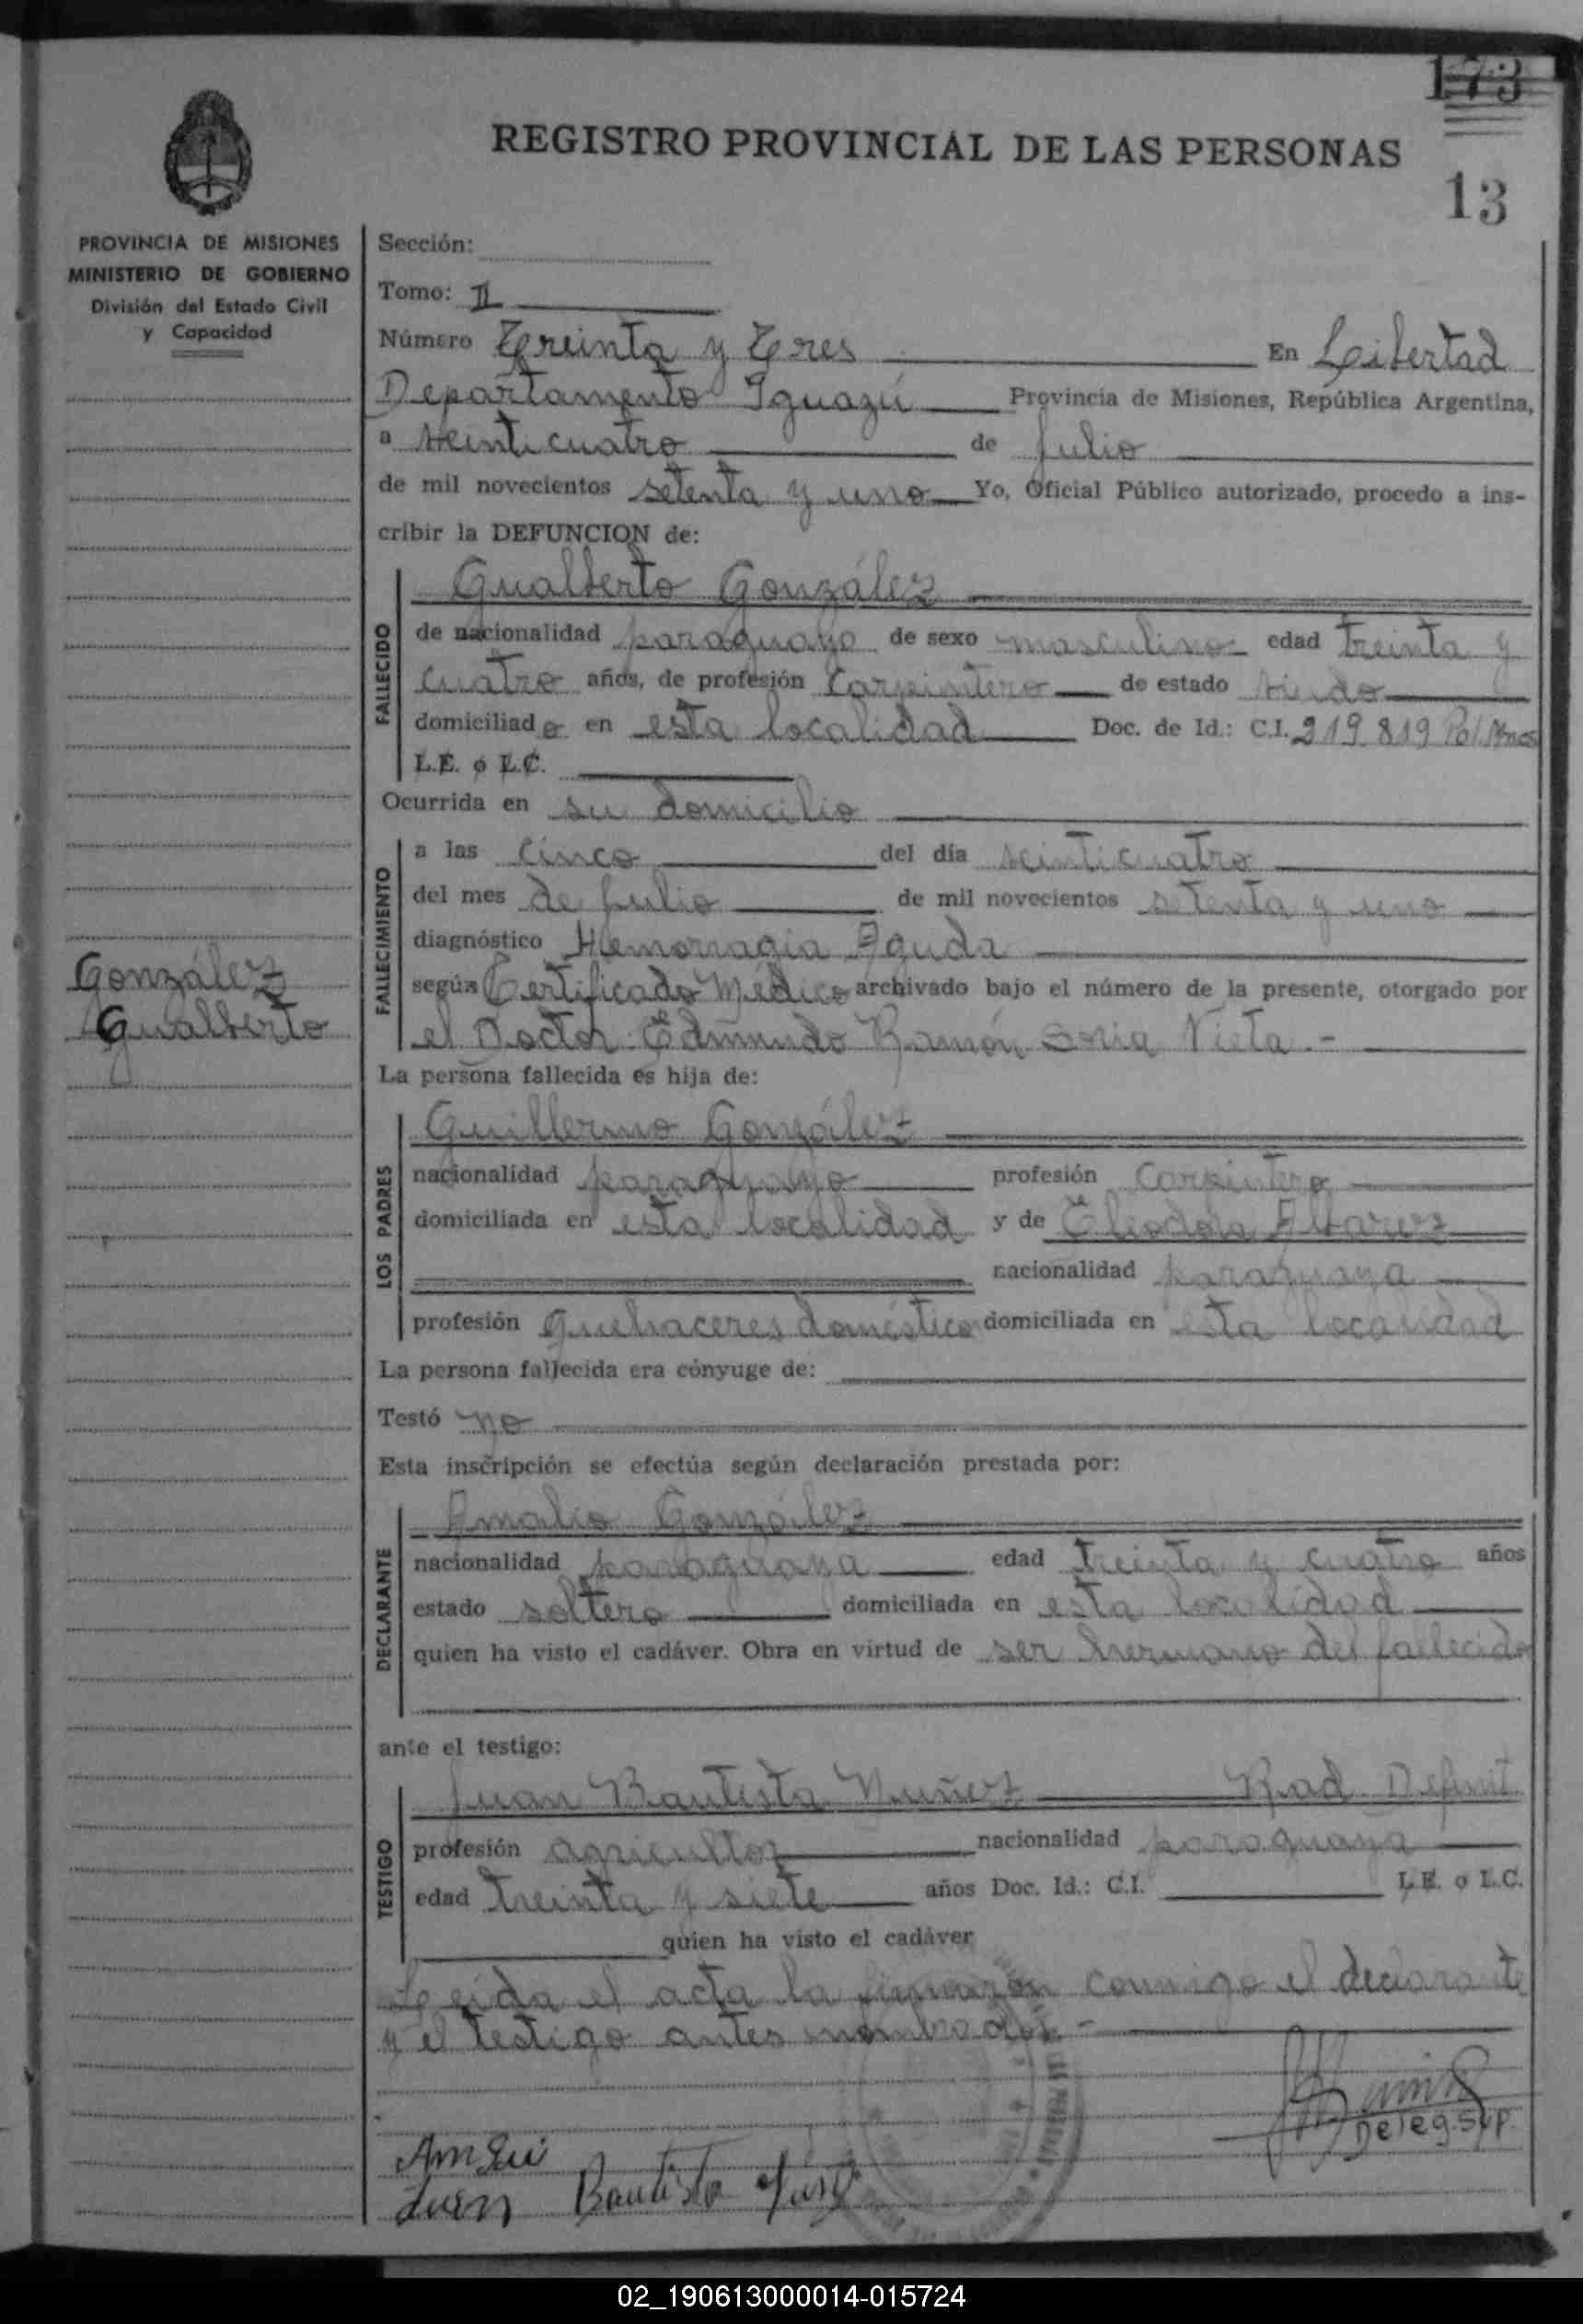 173
REGISTRO PROVINCIAL DE LAS PERSONAS
13
PROVINCIA DE MISIONES
MINISTERIO DE GOBIERNO
División del Estado Civil
y Capacidad
Sección:
Tomo: II
Número Treinta y Tres En Libertad
Departamento Iguazú Provincia de Misiones, República Argentina,
a veinticuatro de julio
de mil novecientos setenta y uno Yo, Oficial Público autorizado, procedo a ins-
cribir la DEFUNCION de:
Gualberto González
FALLECIDO
de nacionalidad paraguayo de sexo masculino edad treinta y
cuatro años, de profesión Carpintero de estado viudo
domiciliado en esta localidad Doc. de Id.: C.I. 219.819 Pol. Mnes
L.E. o L.C.
Ocurrida en su domicilio
FALLECIMIENTO
a las cinco del día veinticuatro
del mes de julio de mil novecientos setenta y uno
diagnóstico Hemorragia Aguda
según Certificado Médico archivado bajo el número de la presente, otorgado por
el Doctor Edmundo Ramón Soria Vieta.-
González
Gualberto
La persona fallecida es hija de:
Guillermo González
LOS PADRES
nacionalidad paraguayo profesión carpintero
domiciliada en esta localidad y de Eleodora Alvarez
nacionalidad paraguaya
profesión quehaceres domésticos domiciliada en esta localidad
La persona fallecida era cónyuge de:
Testó no
Esta inscripción se efectúa según declaración prestada por:
Amalio González
DECLARANTE
nacionalidad paraguaya edad treinta y cuatro años
estado soltero domiciliada en esta localidad
quien ha visto el cadáver. Obra en virtud de ser hermano del fallecido
ante el testigo:
Juan Bautista Nuñez Rad. Definit.
TESTIGO
profesión agricultor nacionalidad paraguaya
edad treinta y siete años Doc. Id.: C.I. L.E. o L.C.
quien ha visto el cadáver
Leída el acta la firmaron conmigo el declarante
y el testigo antes nombrados.-
Deleg. Sup.
Juan Bautista
02_190613000014-015724